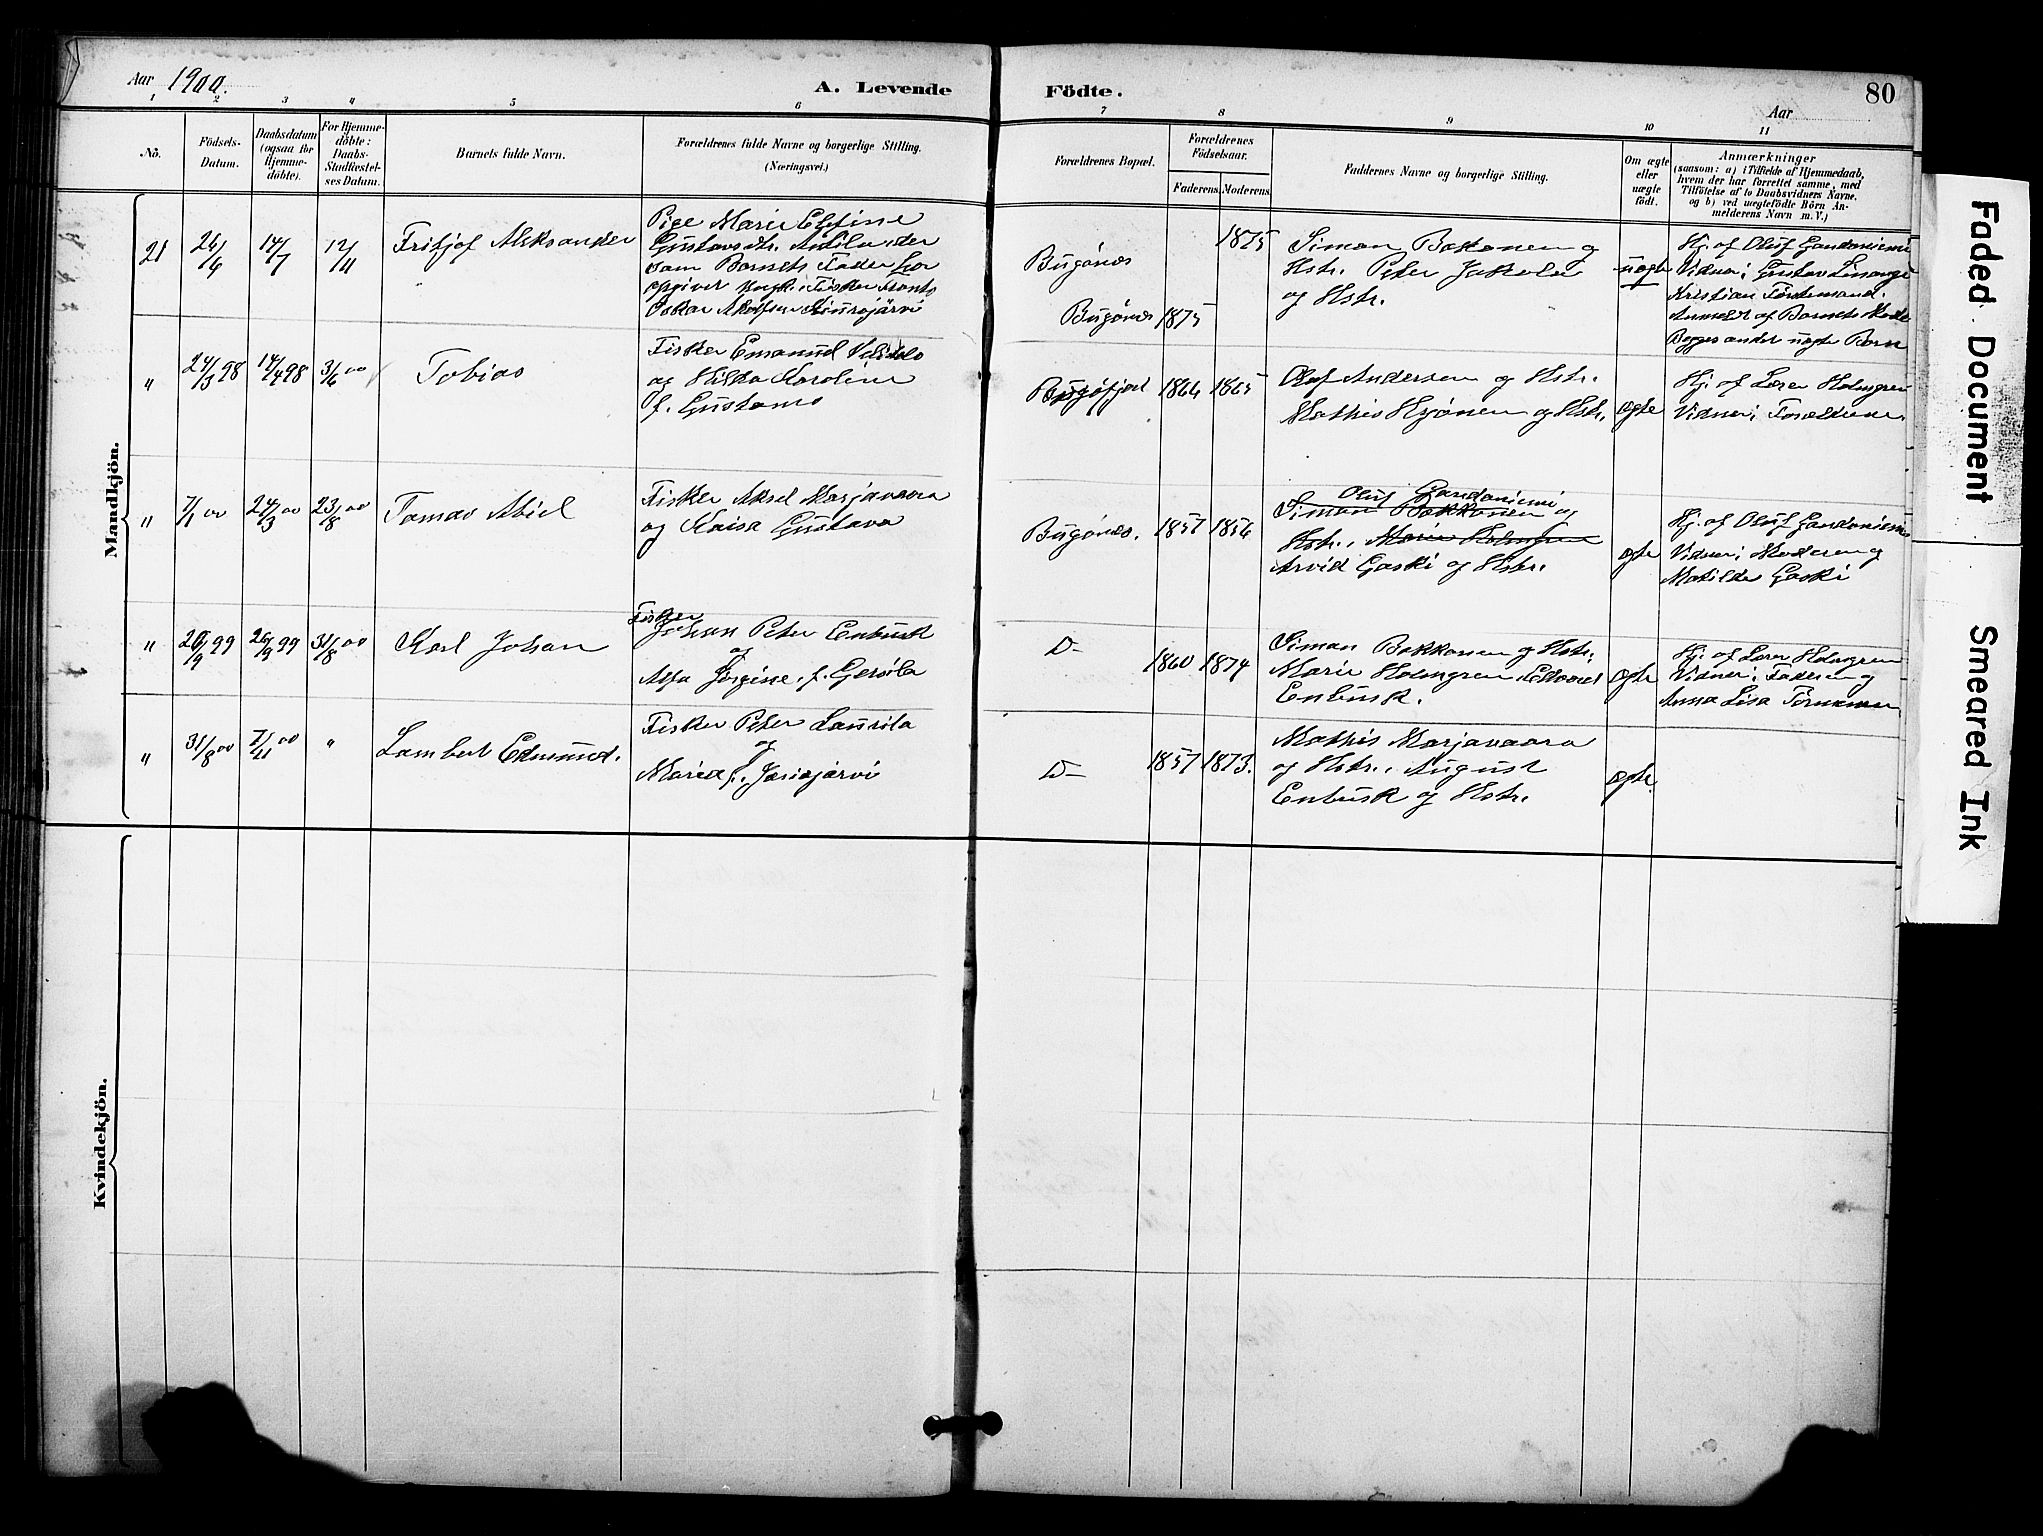 Aar 1900.
A. Levende
Födte.
Aar
80
1
2
3
4
5
6
7
8
9
10
11
No.
Födsels-
Datum.
Daabsdatum
(ogsaa for
Hjemme-
döbte).
For Hjemme-
döbte:
Daabs-
Stadfæstel-
ses Datum.
Barnets fulde Navn.
Forældrenes fulde Navne og borgerlige Stilling.
(Næringsvei.)
Forældrenes Bopæl.
Forældrenes
Födselsaar.
Faderens.
Moderens.
Faddernes Navne og borgerlige Stilling.
Om ægte
eller
uægte
födt.
Anmærkninger
(saasom: a) i Tilfælde af Hjemmedaab,
hvem der har forrettet samme, med
Tilföielse af to Daabsvidners Navne.
og b) ved uægtefödte Börn An-
melderens Navn m. V.)
Mandkjön.
21
26/6
14/7
12/11
Fritjof Aleksander
Pige Marie
Gustavsdtr.
som Barnets Fader
opgiver Fisker
Oskar
Bugönes
Bugönes
1875
1875
Siman Bakkanen og
Hstr. Peter Jakola
og Hstr.
uægte
Hj. af Oluf Gandaniemi
Vidner: Gustav
Kristian
Anmeldt af Barnets
Begges andet uægte Barn
"
24/3 98
14/4 98
3/6 00
Tobias
Fisker Emanuel
og Hilda Karoline
f. Gustava
Bugöfjord
1864
1865
Olaf Andersen og Hstr.
Mathis og Hstr.
ægte
Hj. af Lærer Holmgren
Vidner: Forældrene
"
7/1 00
24/3 00
23/8 00
Tomas Abiel
Fisker Aksel Marjavaara
og Kaisa Gustava
Bugönes.
1857
1856
Oluf Gandaniemi
Siman Bakkanen og
Hstr., Marie Holmgren
Arvid Gaski og Hstr.
ægte
Hj. af Oluf Gandaniemi
Vidner: Moderen og
Matilde Gaski
"
20/9 99
26/9 99
31/8 00
Karl Johan
Fisker
Johan Peter Enbusk
og
Alfa Jörgine, f. Gersila
D-
1860
1874
Siman Bakkanen og Hstr.
Marie Holmgren, Edvard
Enbusk.
ægte
Hj. af Lærer Holmgren
Vidner: Faderen og
Anna Lisa
"
31/8 00
7/11 00
"
Lambert Edmund.
Fisker Peter Laurila
og
Maria f. Jänisjärvi
D-
1857
1873.
Mathis Marjavaara
og Hstr., August
Enbusk og Hstr.
ægte.
Kvindekjön.
Faded Document
Smeared Ink